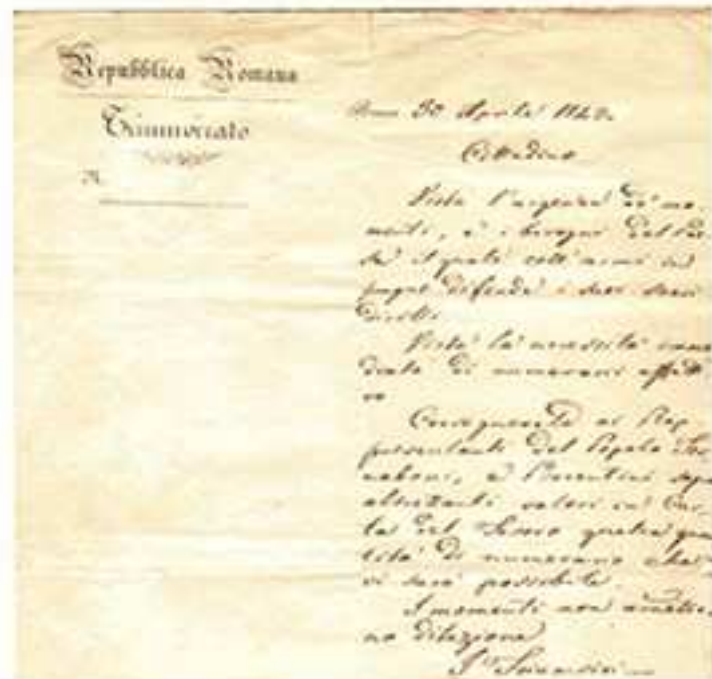 Repubblica Romana
Triumvirato
N.
Roma 30 Aprile 1849
Cittadino
Vista l'urgenza de' mo-
menti, e i bisogni del Pae-
se il quale coll' armi in
pugno difende i suoi sacri
diritti
Vista la necessità imme
diata di numerario effetti
vo
Consegnerete ai Rap
presentanti del Popolo
e Piorentini sopra
altrettanti valori in Car-
ta del Tesoro quella quan
tità di numerario che
vi sarà possibile.
I momenti non ametto
no dilazione
I Triumviri